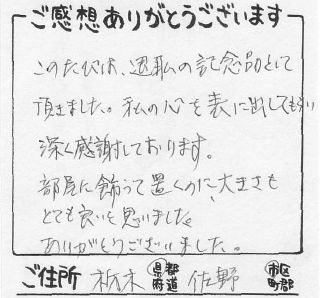 ご感想ありがとうございます
このたびは、退職の記念品として
頂きました。私の心を表に出してもらい
深く感謝しております。
部屋に飾って置くのに、大きさも
とても良いと思いました。
ありがとうございました。
ご住所 栃木 都道府県 佐野 市区町郡